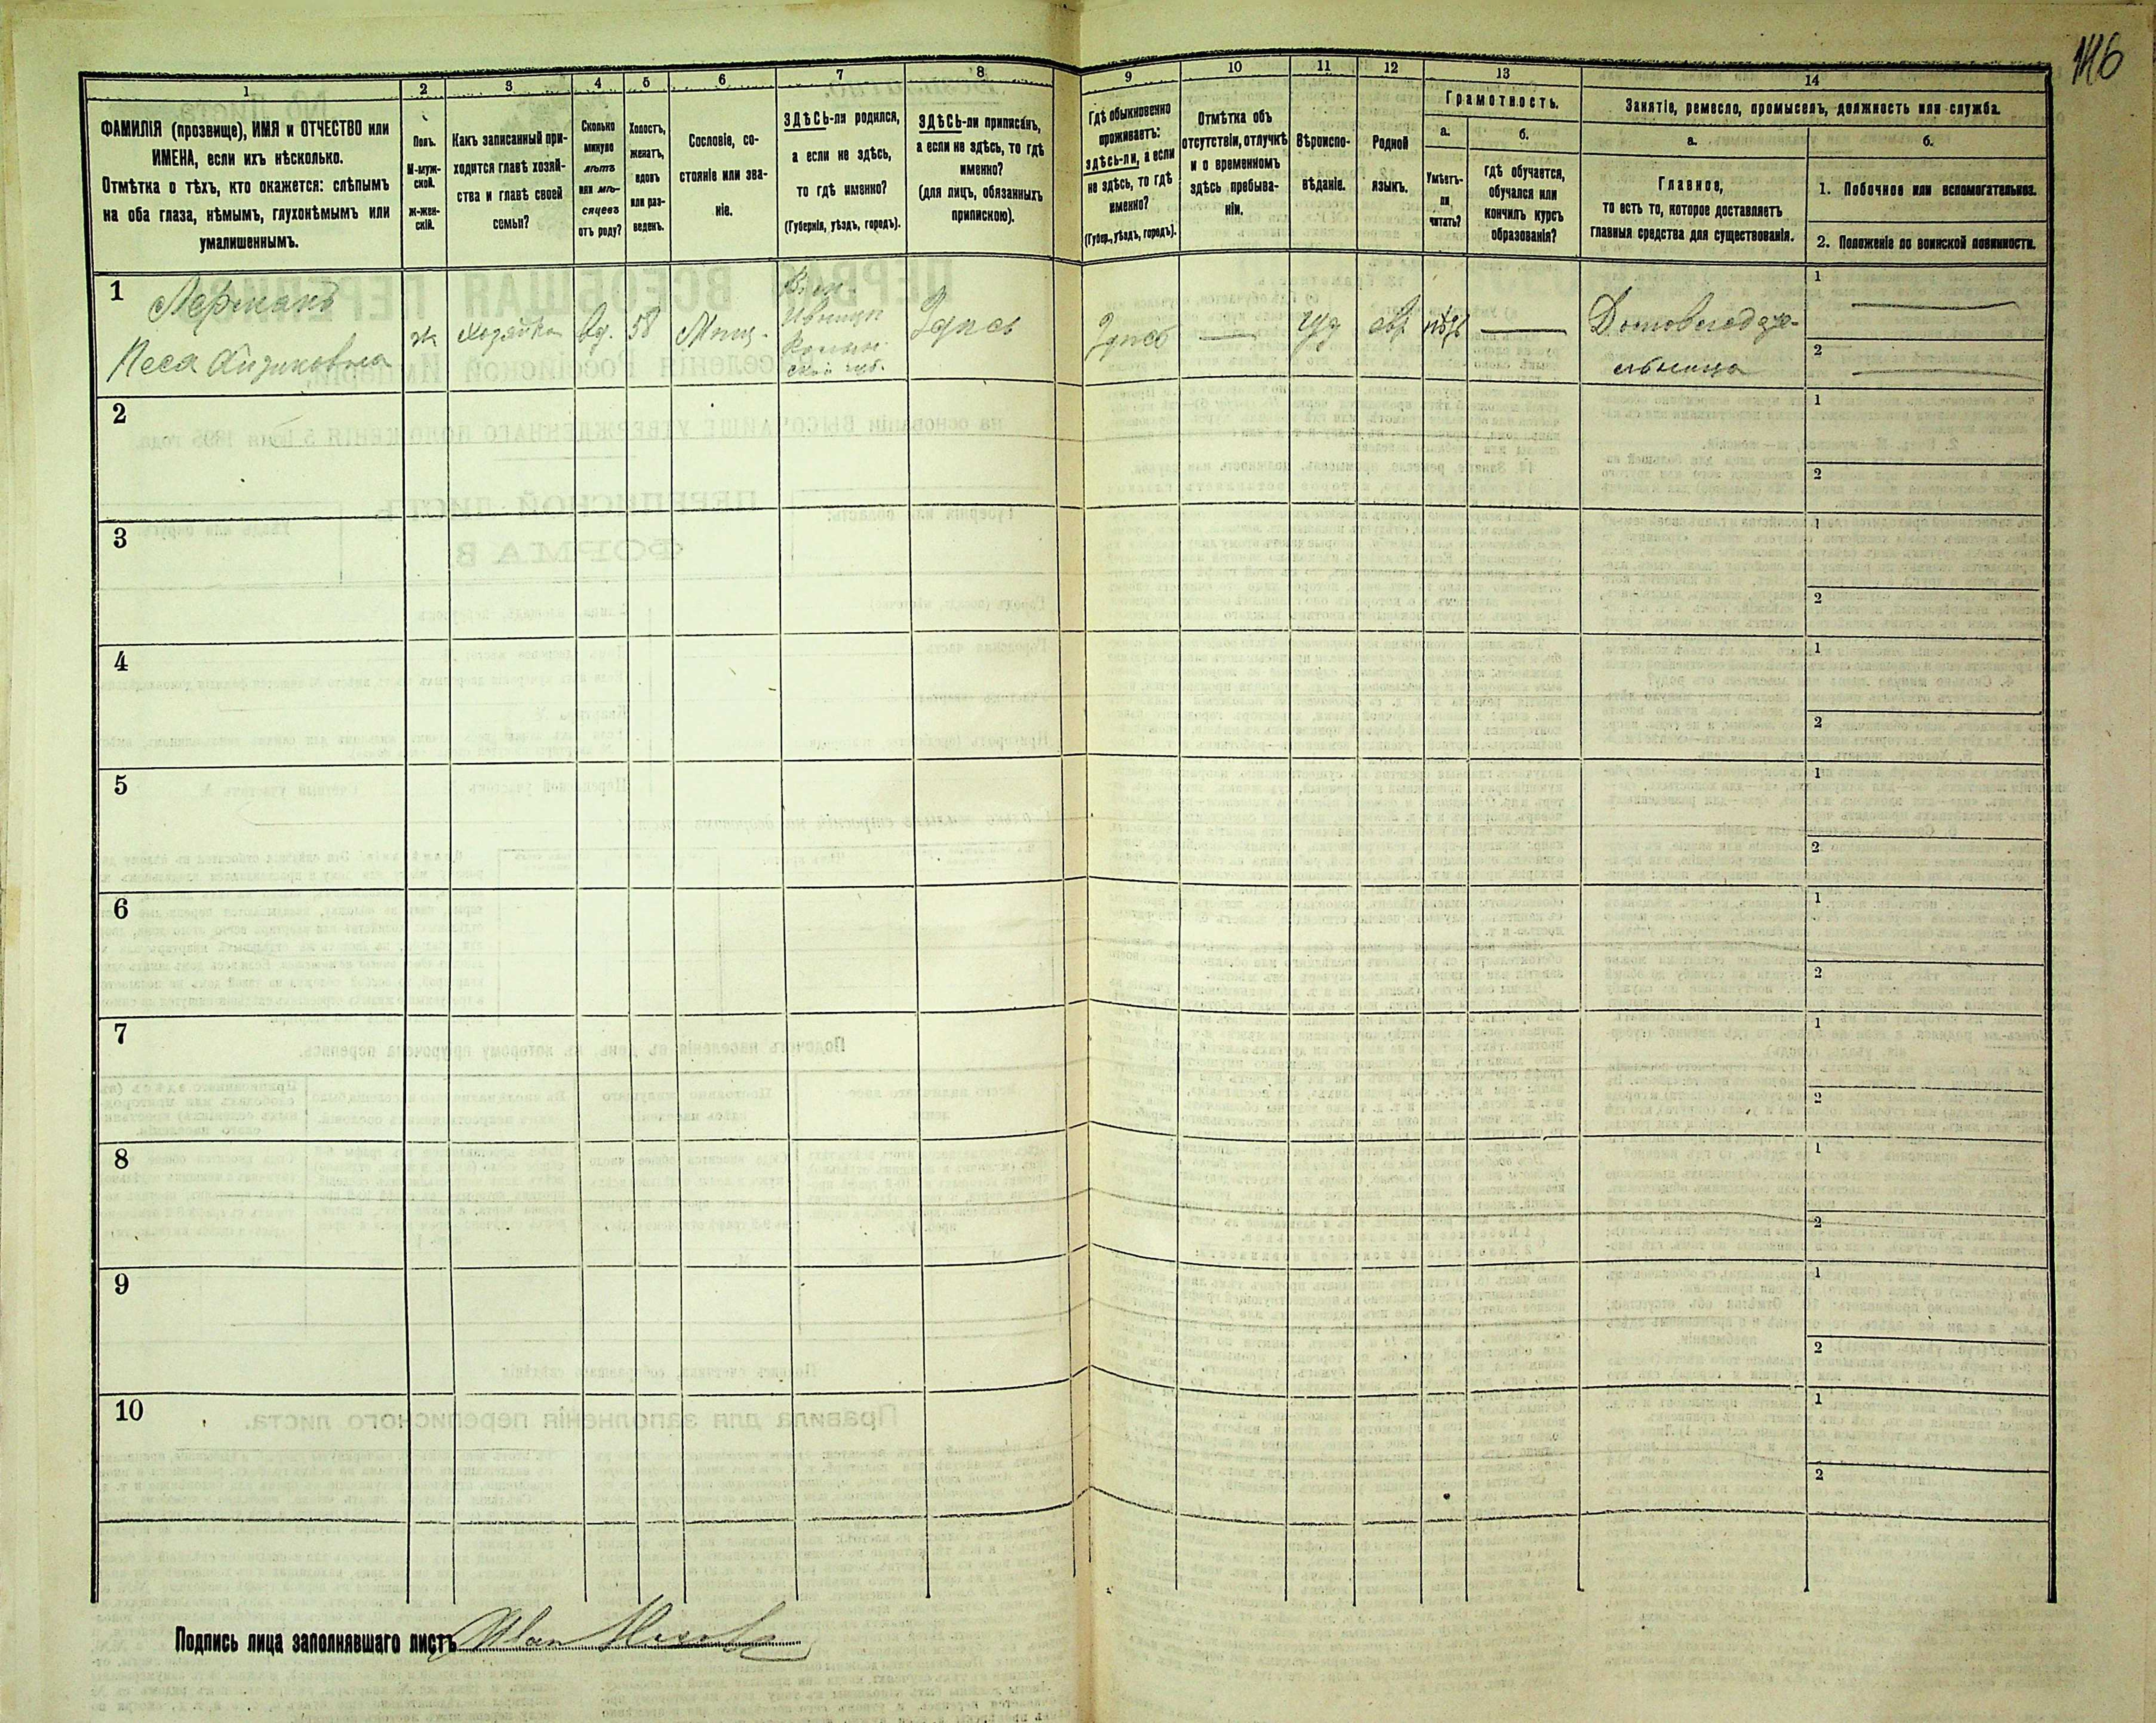 146
1
2
3
4
5
6
7
8
9
10
11
12
13
14
ФАМИЛІЯ (прозвище), ИМЯ и ОТЧЕСТВО или
ИМЕНА, если ихъ нѣсколько.
Отмѣтка о тѣхъ, кто окажется: слѣпымъ
на оба глаза, нѣмымъ, глухонѣмымъ или
умалишеннымъ.
Полъ.
М-муж-
ской.
Ж-жен-
скій.
Какъ записанный при-
ходится главѣ хозяй-
ства и главѣ своей
семьи?
Сколько
минуло
лѣтъ
или мѣ-
сяцевъ
отъ роду?
Холостъ,
женатъ,
вдовъ
или раз-
веденъ.
Сословіе, со-
стояніе или зва-
ніе.
ЗДѢСЬ-ли родился,
а если не здѣсь,
то гдѣ именно?
(Губернія, уѣздъ, городъ).
ЗДѢСЬ-ли приписанъ,
а если не здѣсь, то гдѣ
именно?
(для лицъ, обязанныхъ
припискою).
Гдѣ обыкновенно
проживаетъ:
здѣсь-ли, а если
не здѣсь, то гдѣ
именно?
(Губер., уѣздъ, городъ).
Отмѣтка объ
отсутствіи, отлучкѣ
и о временномъ
здѣсь пребыва-
ніи.
Вѣроиспо-
вѣданіе.
Родной
языкъ.
Грамотность.
а.
Умѣетъ-
ли
читать?
б.
гдѣ обучается,
обучался или
кончилъ курсъ
образованія?
Занятіе, ремесло, промыселъ, должность или служба.
а.
Главное,
то есть то, которое доставляетъ
главныя средства для существованія.
б.
1. Побочное или вспомогательное.
2. Положеніе по воинской повинности.
1
Лерманъ
Песя
ж
Хозяйка
Вд.
58
Мѣщ.
Здѣсь
Здѣсь
—
Іуд
евр
нѣтъ
—
Домовладѣ-
льница
1 —
2 —
2
1
2
3
1
2
4
1
2
5
1
2
6
1
2
7
1
2
8
1
2
9
1
2
10
1
2
Подпись лица заполнявшаго листъ